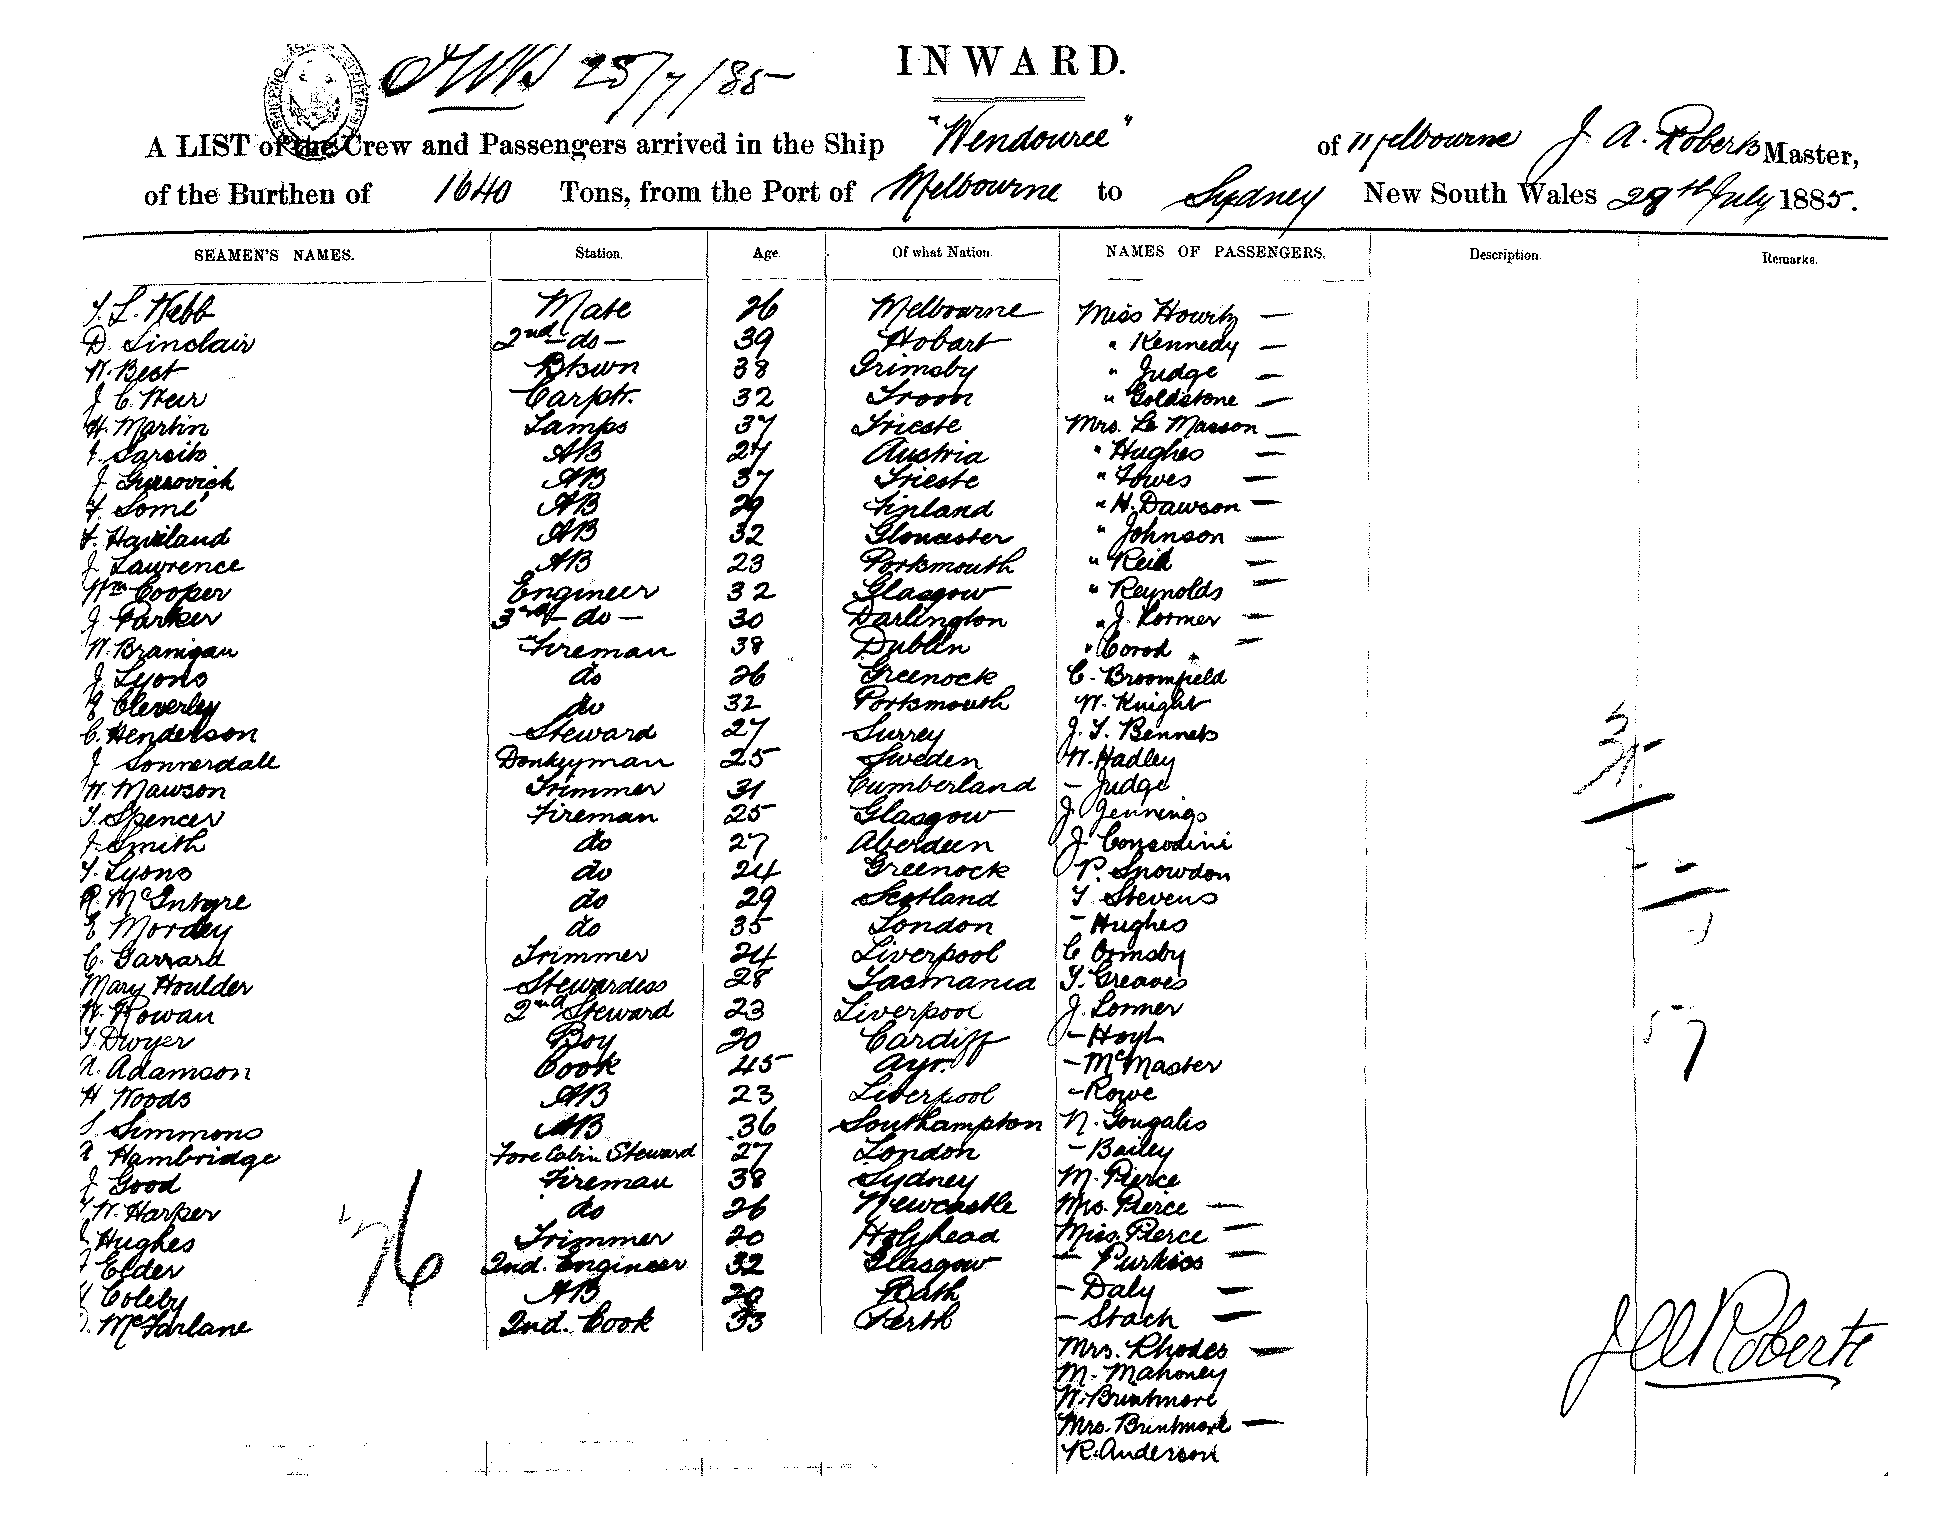 25/7/85
INWARD.
A LIST of the Crew and Passengers arrived in the Ship "Wendouree" of Melbourne J A. Roberts Master,
of the Burthen of 1640 Tons, from the Port of Melbourne to Sydney New South Wales 28th July 1885.
SEAMEN'S NAMES. Station. Age. Of what Nation. NAMES OF PASSENGERS. Description. Remarks.
T. L. Webb Mate 26 Melbourne Miss Howitz —
D. Sinclair 2nd - do - 39 Hobart " Kennedy —
W. Best Btswn 38 Grimsby " Judge —
J C. Weir Carptr. 32 Troon " Goldstone —
H. Martin Lamps 37 Trieste Mrs. Le Masson —
Sarsih AB 27 Austria " Hughes —
J. AB 37 Trieste " Fowes —
F. Somé AB 29 Finland " H. Dawson —
F. Haviland AB 32 Gloucester " Johnson —
J Lawrence AB 23 Portsmouth " Reid —
Wm Cooper Engineer 32 Glasgow " Reynolds —
J. Parker 3rd - do - 30 Darlington " J. Kormer —
W. Branigan Fireman 38 Dublin " —
J. Lyons do 26 Greenock C. Broomfield
Cleverley do 32 Portsmouth W. Knight
C. Henderson Steward 27 Surrey J. T. Bennets
J Sonnerdale Donkeyman 25 Sweden W. Hadley
W. Mawson Trimmer 31 Cumberland - Judge
T. Spencer Fireman 25 Glasgow J. Jennings
J. Smith do 27 Aberdeen J. Consodini
T. Lyons do 24 Greenock P. Snowdon
R. McIntyre do 29 Scotland T Stevens
E Mordey do 35 London - Hughes
C. Garrard Trimmer 24 Liverpool C Ormsby
Mary Houlder Stewardess 28 Tasmania T. Greaves
W. Rowan 2nd Steward 23 Liverpool J. Lormer
T. Dwyer Boy 20 Cardiff - Hoyt
A. Adamson Cook 45 Ayr. - McMaster
H Woods AB 23 Liverpool - Rowe
Simmons AB 36 Southampton N. Gougalis
Hambridge Fore Cabin Steward 27 London - Bailey
J Good Fireman 38 Sydney M. Pierce
W. Harper do 26 Newcastle Mrs. Pierce —
Hughes Trimmer 20 Holyhead Miss. Pierce —
Elder 2nd. Engineer 32 Glasgow - Purkiss —
Coleby AB 29 Bath - Daly —
McFarlane 2nd. Cook 33 Perth - Stach —
Mrs. Rhodes —
M. Mahoney
W. Brentmore
Mrs. Brentmore —
R. Anderson
76
57
J A Roberts